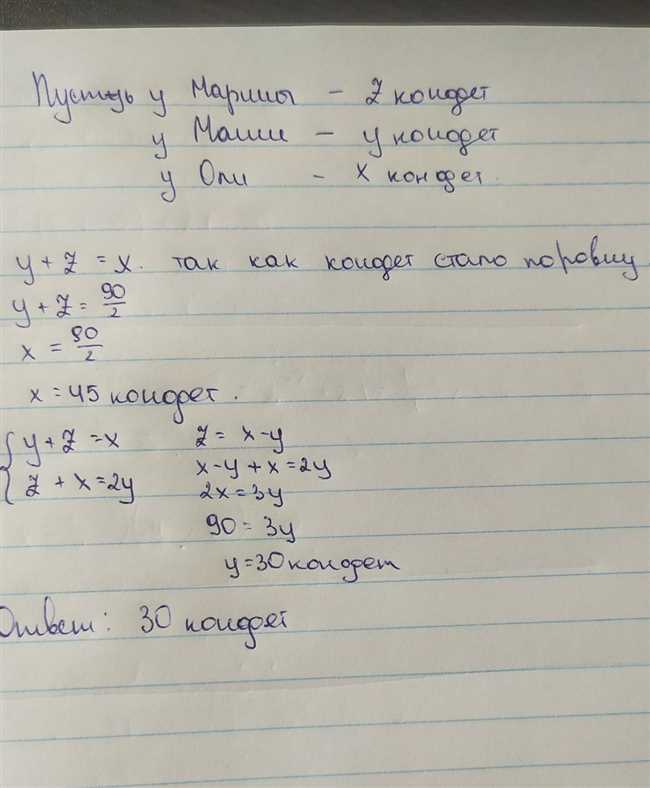 Пусть у Марины – z конфет
у Маши – y конфет
у Оли – x конфет.
y + z = x. так как конфет стало поровну
y + z = 90/2
x = 90/2
x = 45 конфет.
{ y + z = x
z + x = 2y
z = x – y
x – y + x = 2y
2x = 3y
90 = 3y
y = 30 конфет
Ответ: 30 конфет